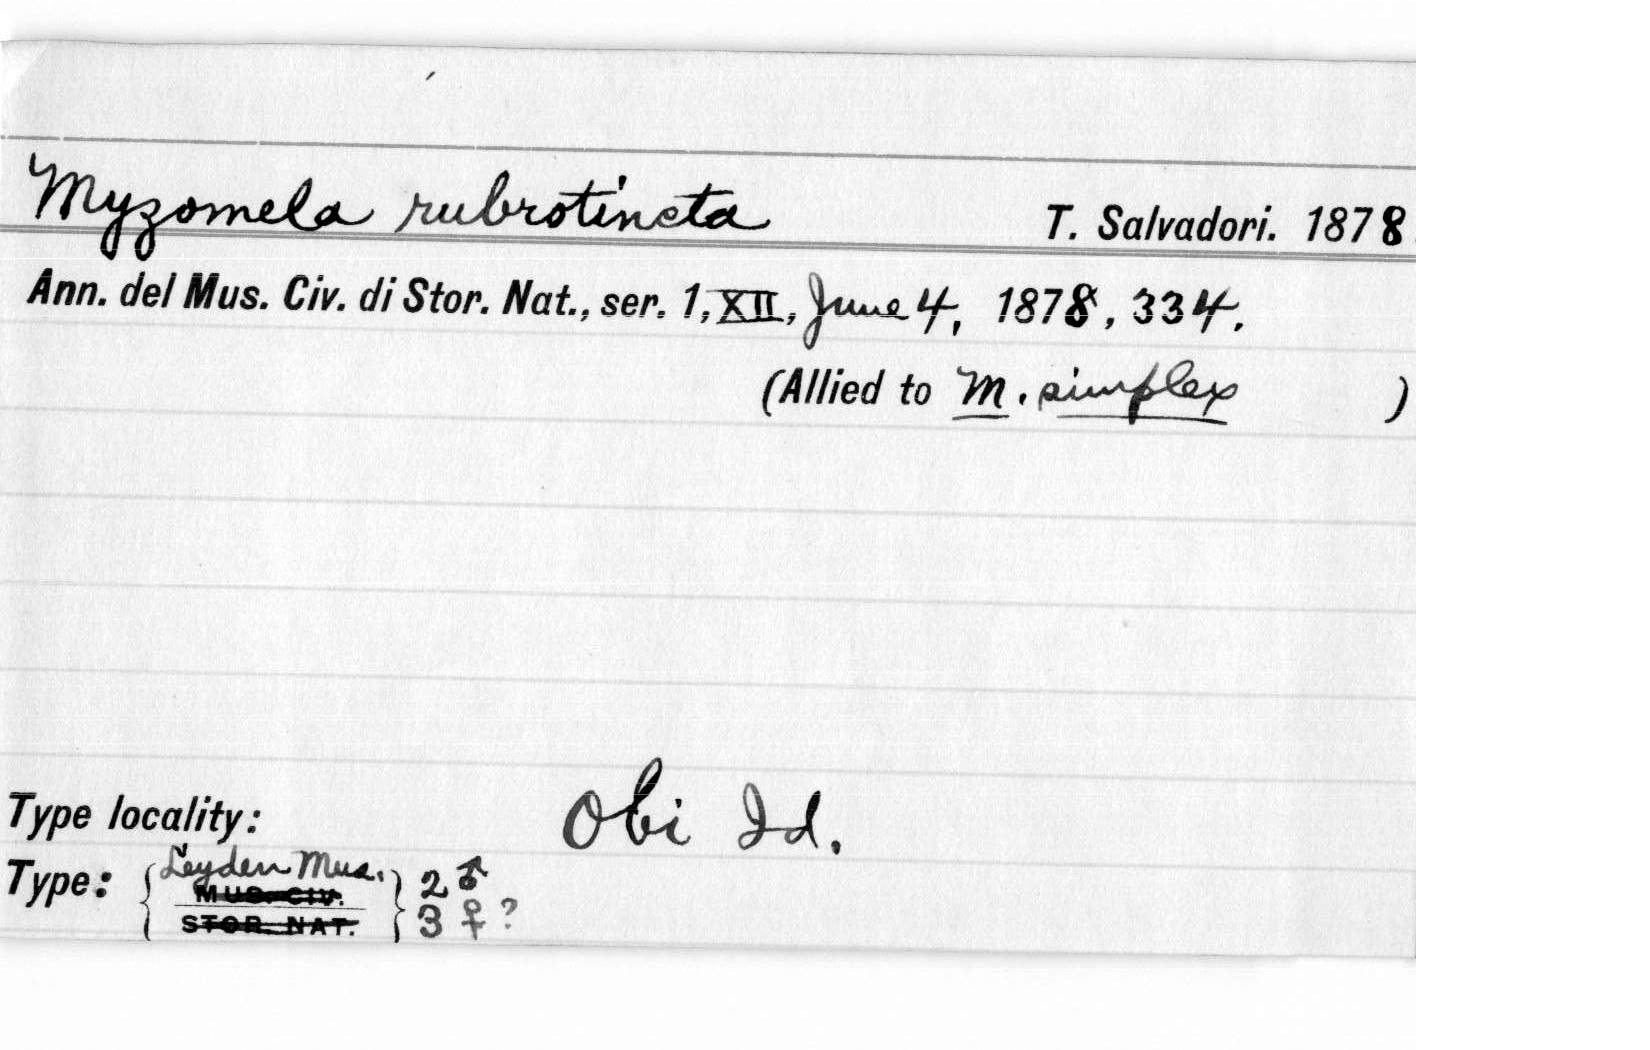 Myzomela rubrotincta T. Salvadori. 1878
Ann. del Mus. Civ. di Stor. Nat., ser. 1, XII, June 4, 1878, 334.
(Allied to M. simplex )
Type locality: Obi Id.
Type: { Leyden Mus. } 2 ♂
MUS. CIV.
STOR. NAT. 3 ♀ ?